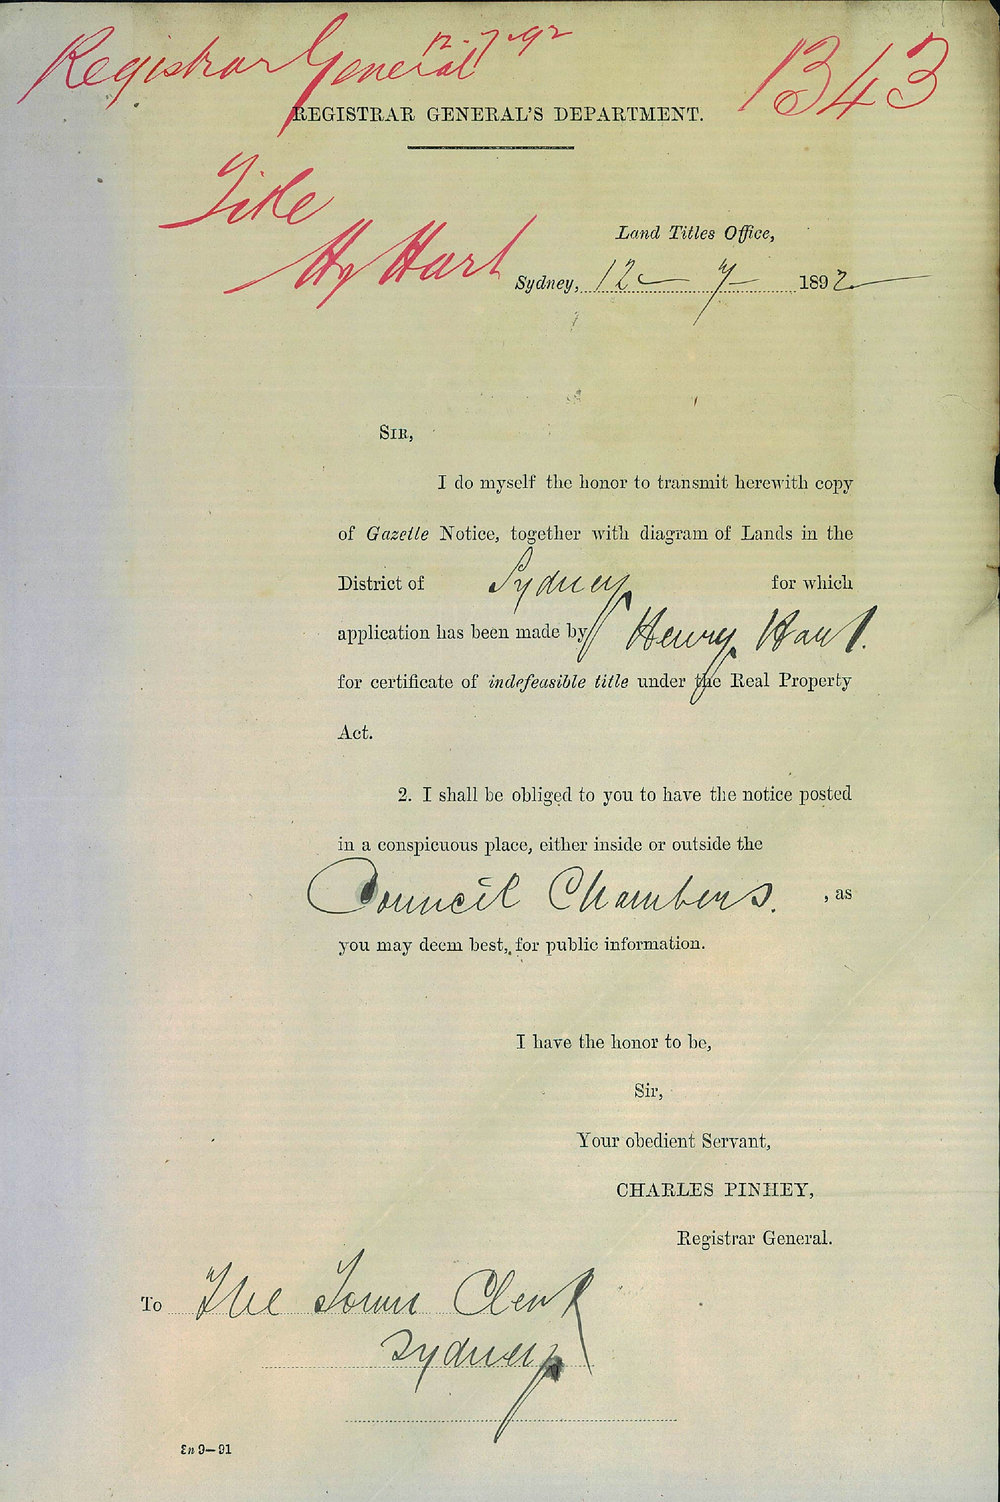 Registrar General 12-7-92
1343
REGISTRAR GENERAL'S DEPARTMENT.
Title
Hy Hart
Land Titles Office,
Sydney, 12 - 7 - 1892
SIR,
I do myself the honor to transmit herewith copy
of Gazette Notice, together with diagram of Lands in the
District of Sydney for which
application has been made by Henry Hart.
for certificate of indefeasible title under the Real Property
Act.
2. I shall be obliged to you to have the notice posted
in a conspicuous place, either inside or outside the
Council Chambers. , as
you may deem best, for public information.
I have the honor to be,
Sir,
Your obedient Servant,
CHARLES PINHEY,
Registrar General.
To The Town Clerk
Sydney
9—91